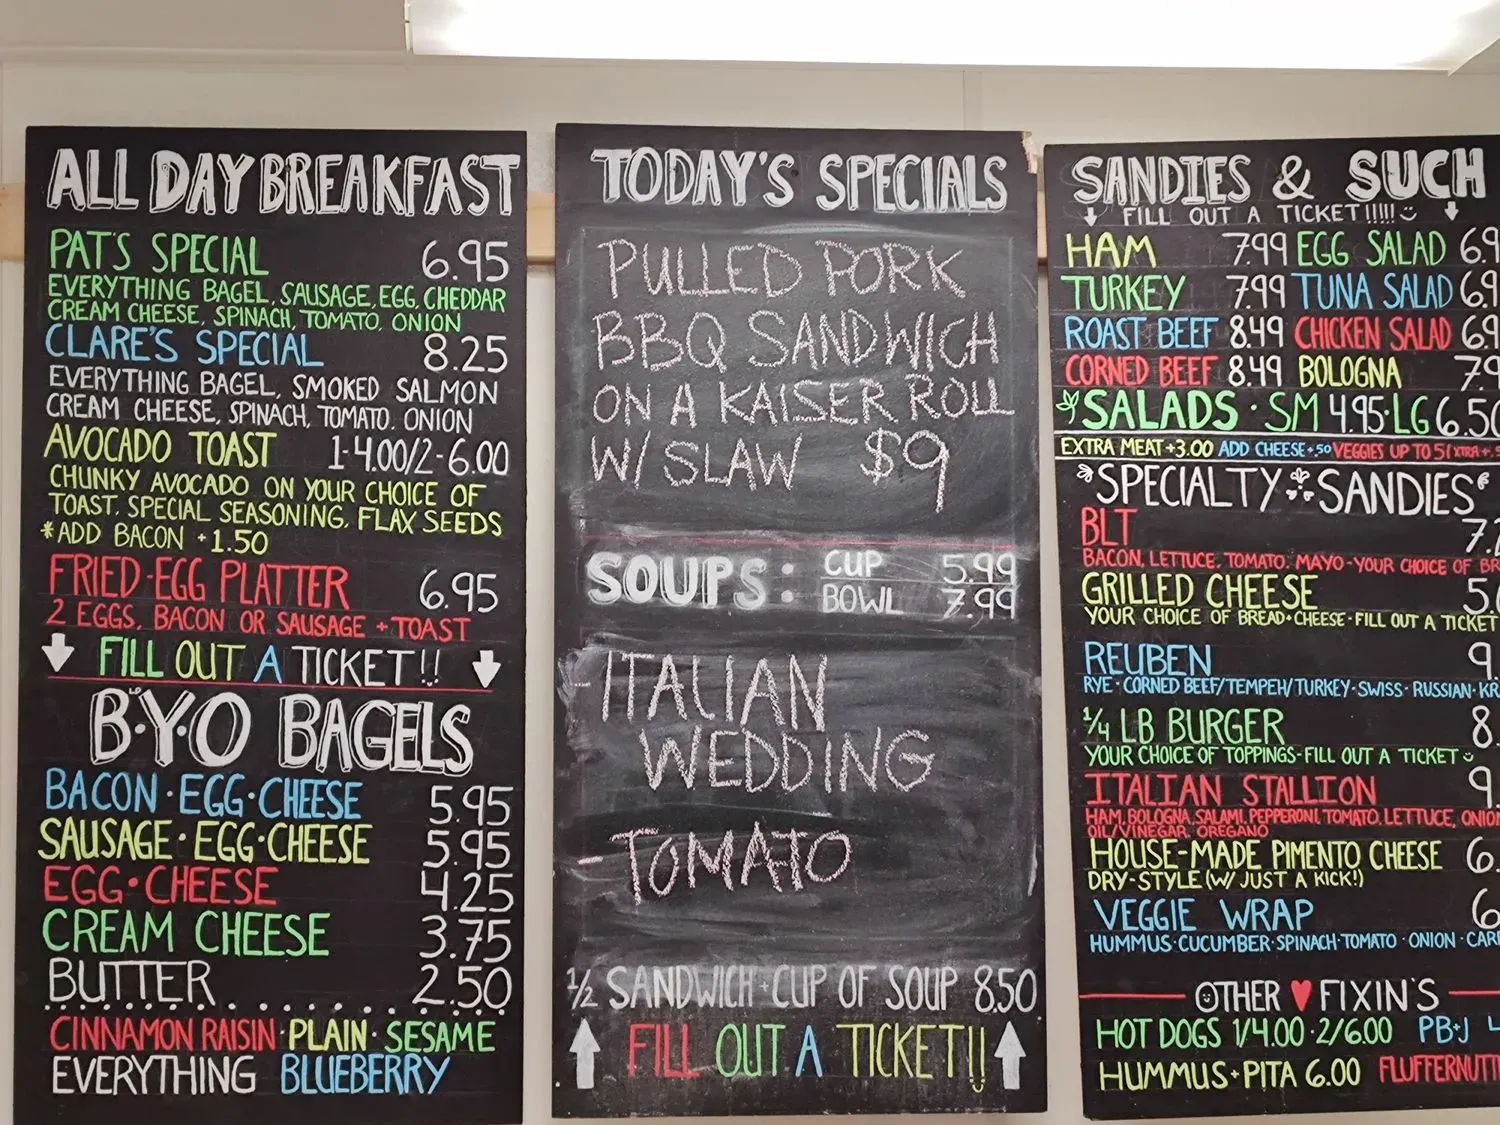 ALL DAY BREAKFAST
PAT'S SPECIAL 6.95
EVERYTHING BAGEL, SAUSAGE, EGG, CHEDDAR
CREAM CHEESE, SPINACH, TOMATO, ONION
CLARE'S SPECIAL 8.25
EVERYTHING BAGEL, SMOKED SALMON
CREAM CHEESE, SPINACH, TOMATO, ONION
AVOCADO TOAST 1-4.00/2-6.00
CHUNKY AVOCADO ON YOUR CHOICE OF
TOAST, SPECIAL SEASONING, FLAX SEEDS
*ADD BACON +1.50
FRIED·EGG PLATTER 6.95
2 EGGS, BACON OR SAUSAGE +TOAST
FILL OUT A TICKET!!
B·Y·O BAGELS
BACON·EGG·CHEESE 5.95
SAUSAGE·EGG·CHEESE 5.95
EGG·CHEESE 4.25
CREAM CHEESE 3.75
BUTTER 2.50
CINNAMON RAISIN·PLAIN·SESAME
EVERYTHING BLUEBERRY
TODAY'S SPECIALS
PULLED PORK
BBQ SANDWICH
ON A KAISER ROLL
W/ SLAW $9
SOUPS: CUP 5.99
BOWL 7.99
-ITALIAN
WEDDING
-TOMATO
1/2 SANDWICH+CUP OF SOUP 8.50
FILL OUT A TICKET!!
SANDIES & SUCH
FILL OUT A TICKET!!!!!
HAM 7.99 EGG SALAD 6.9
TURKEY 7.99 TUNA SALAD 6.9
ROAST BEEF 8.49 CHICKEN SALAD 6.9
CORNED BEEF 8.49 BOLOGNA 7.9
SALADS·SM 4.95·LG 6.50
EXTRA MEAT+3.00 ADD CHEESE+.50 VEGGIES UP TO 5/
"SPECIALTY SANDIES"
BLT 7.
BACON, LETTUCE, TOMATO, MAYO-YOUR CHOICE OF BR
GRILLED CHEESE 5.
YOUR CHOICE OF BREAD+CHEESE-FILL OUT A TICKET
REUBEN 9.
RYE·CORNED BEEF/TEMPEH/TURKEY·SWISS·RUSSIAN·KR
1/4 LB BURGER 8.
YOUR CHOICE OF TOPPINGS-FILL OUT A TICKET
ITALIAN STALLION 9.
HAM, BOLOGNA, SALAMI, PEPPERONI, TOMATO, LETTUCE, ONION
OIL/VINEGAR, OREGANO
HOUSE-MADE PIMENTO CHEESE 6.
DRY-STYLE (W/ JUST A KICK!)
VEGGIE WRAP 6
HUMMUS·CUCUMBER·SPINACH·TOMATO·ONION·CAR
OTHER ♥ FIXIN'S
HOT DOGS 1/4.00·2/6.00 PB+J 4
HUMMUS+PITA 6.00 FLUFFERNUTT